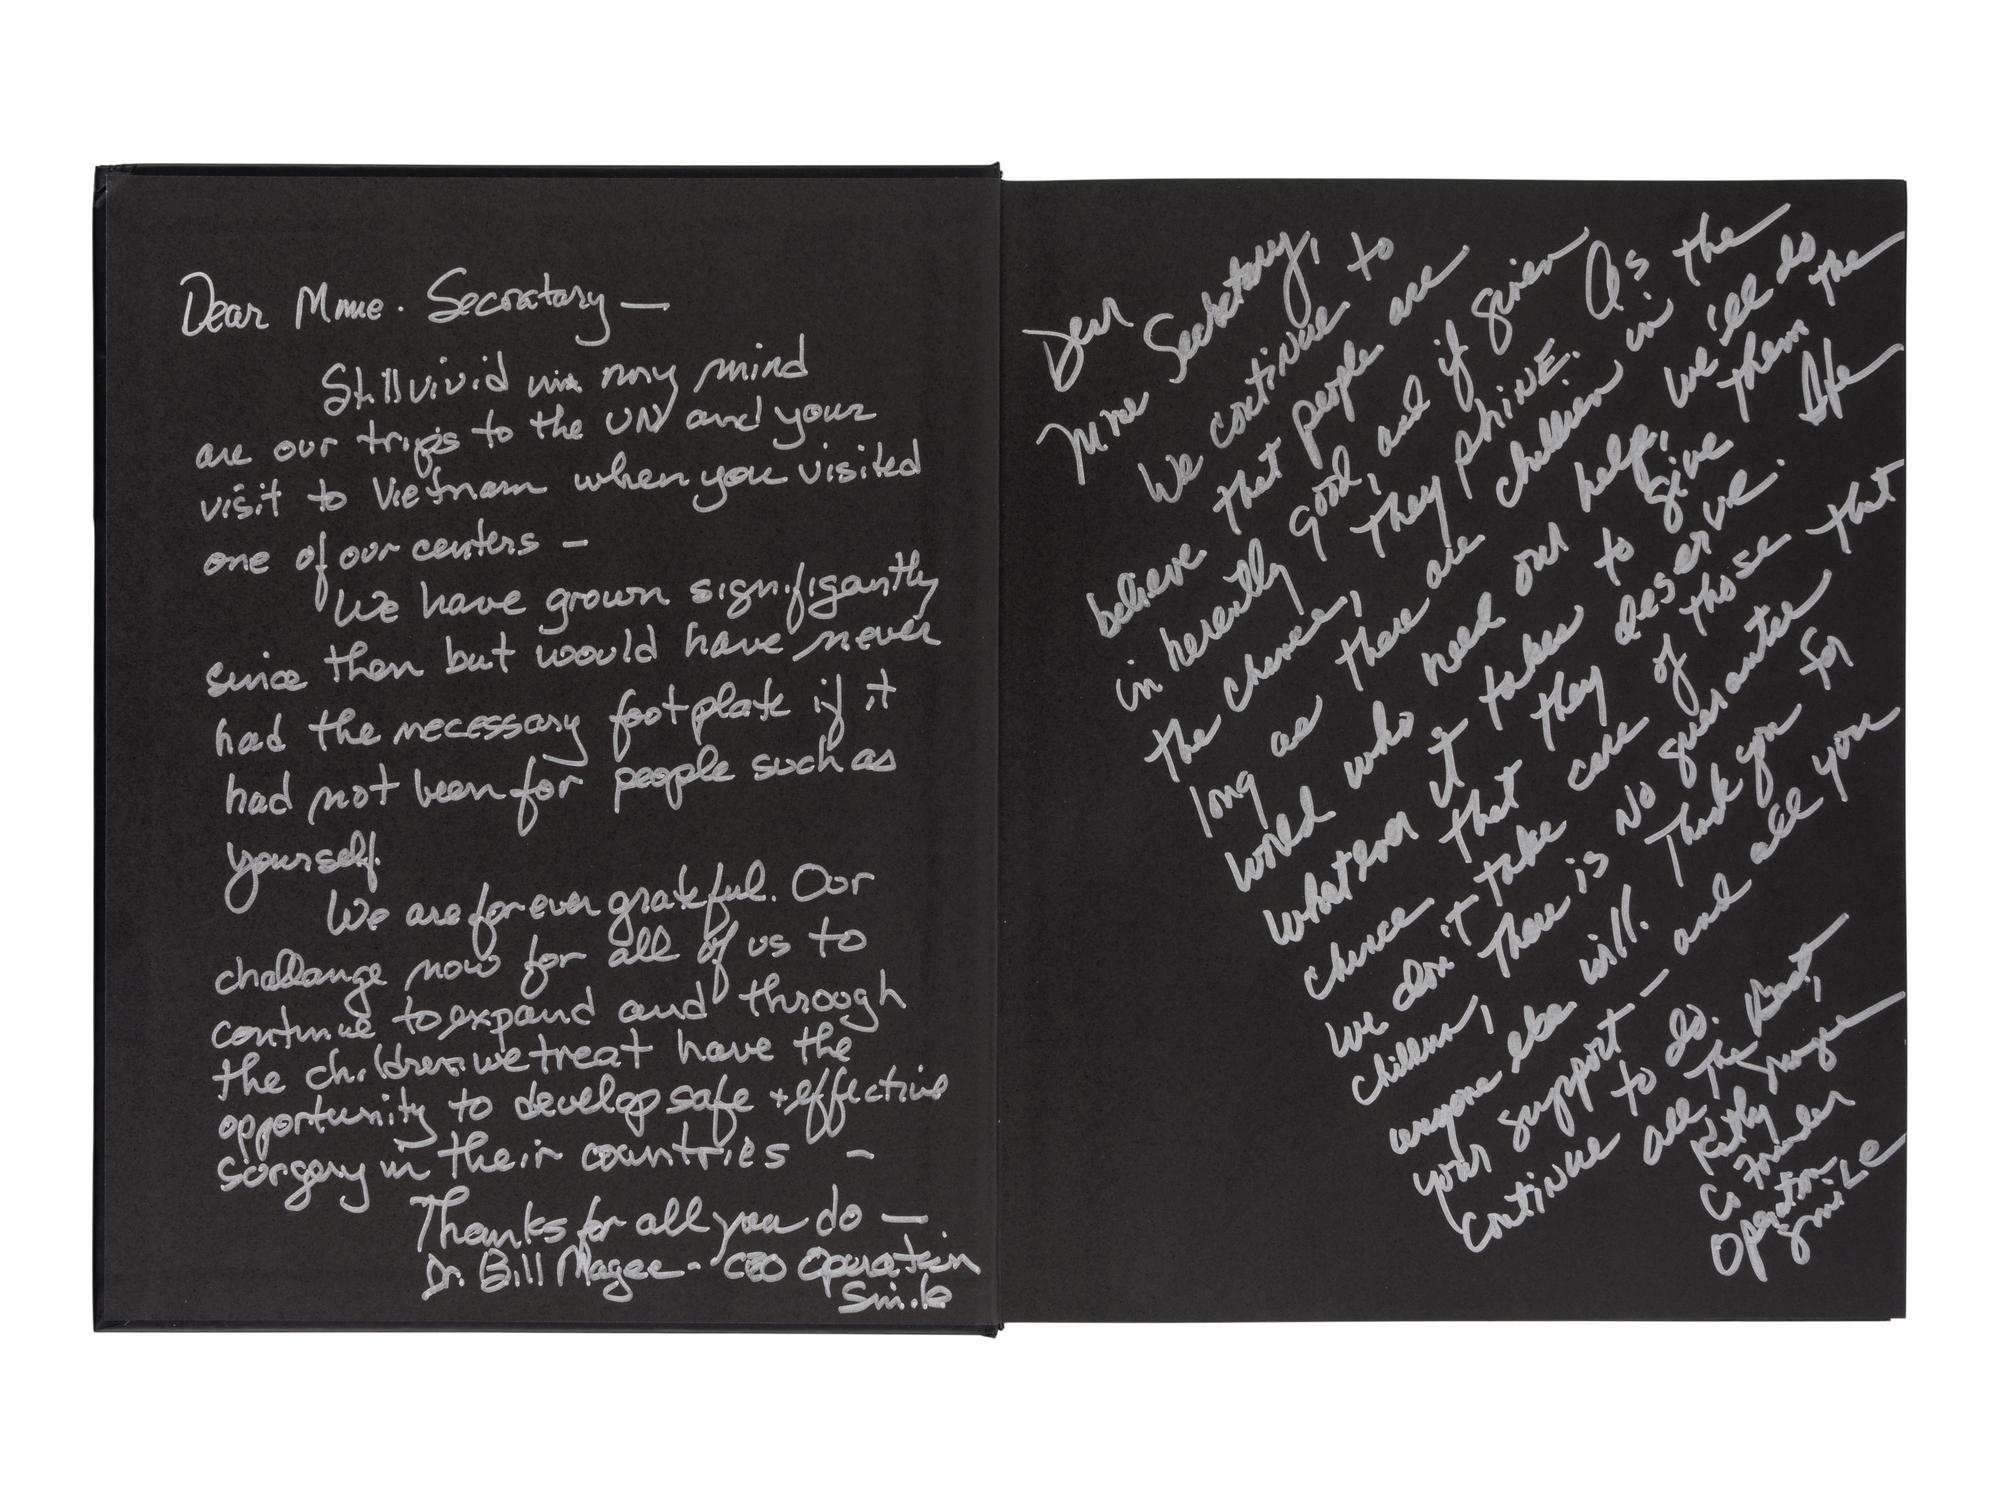 Dear Mme. Secretary —
Still vivid in my mind
are our trips to the UN and your
visit to Vietnam when you visited
one of our centers —
We have grown signifigantly
since then but would have never
had the necessary footplate if it
had not been for people such as
yourself.
We are forever grateful. Our
challange now for all of us to
continue to expand and through
the children we treat have the
opportunity to develop safe + effective
surgery in their countries —
Thanks for all you do —
Dr. Bill Magee - CEO Operation
Smile
Dear
Mme Secretary,
We continue to
believe that people are
inherently good, and if given
the chance, they shine. As
long as there are children in the
world who need our help, we'll do
whatever it takes to give them the
chance that they deserve. If
we don't take care of those that
children, there is no guarantee
anyone else will. Thank you for
your support — and all you
continue to do.
All The Best,
Kathy Magee
Co Founder
Operation
Smile